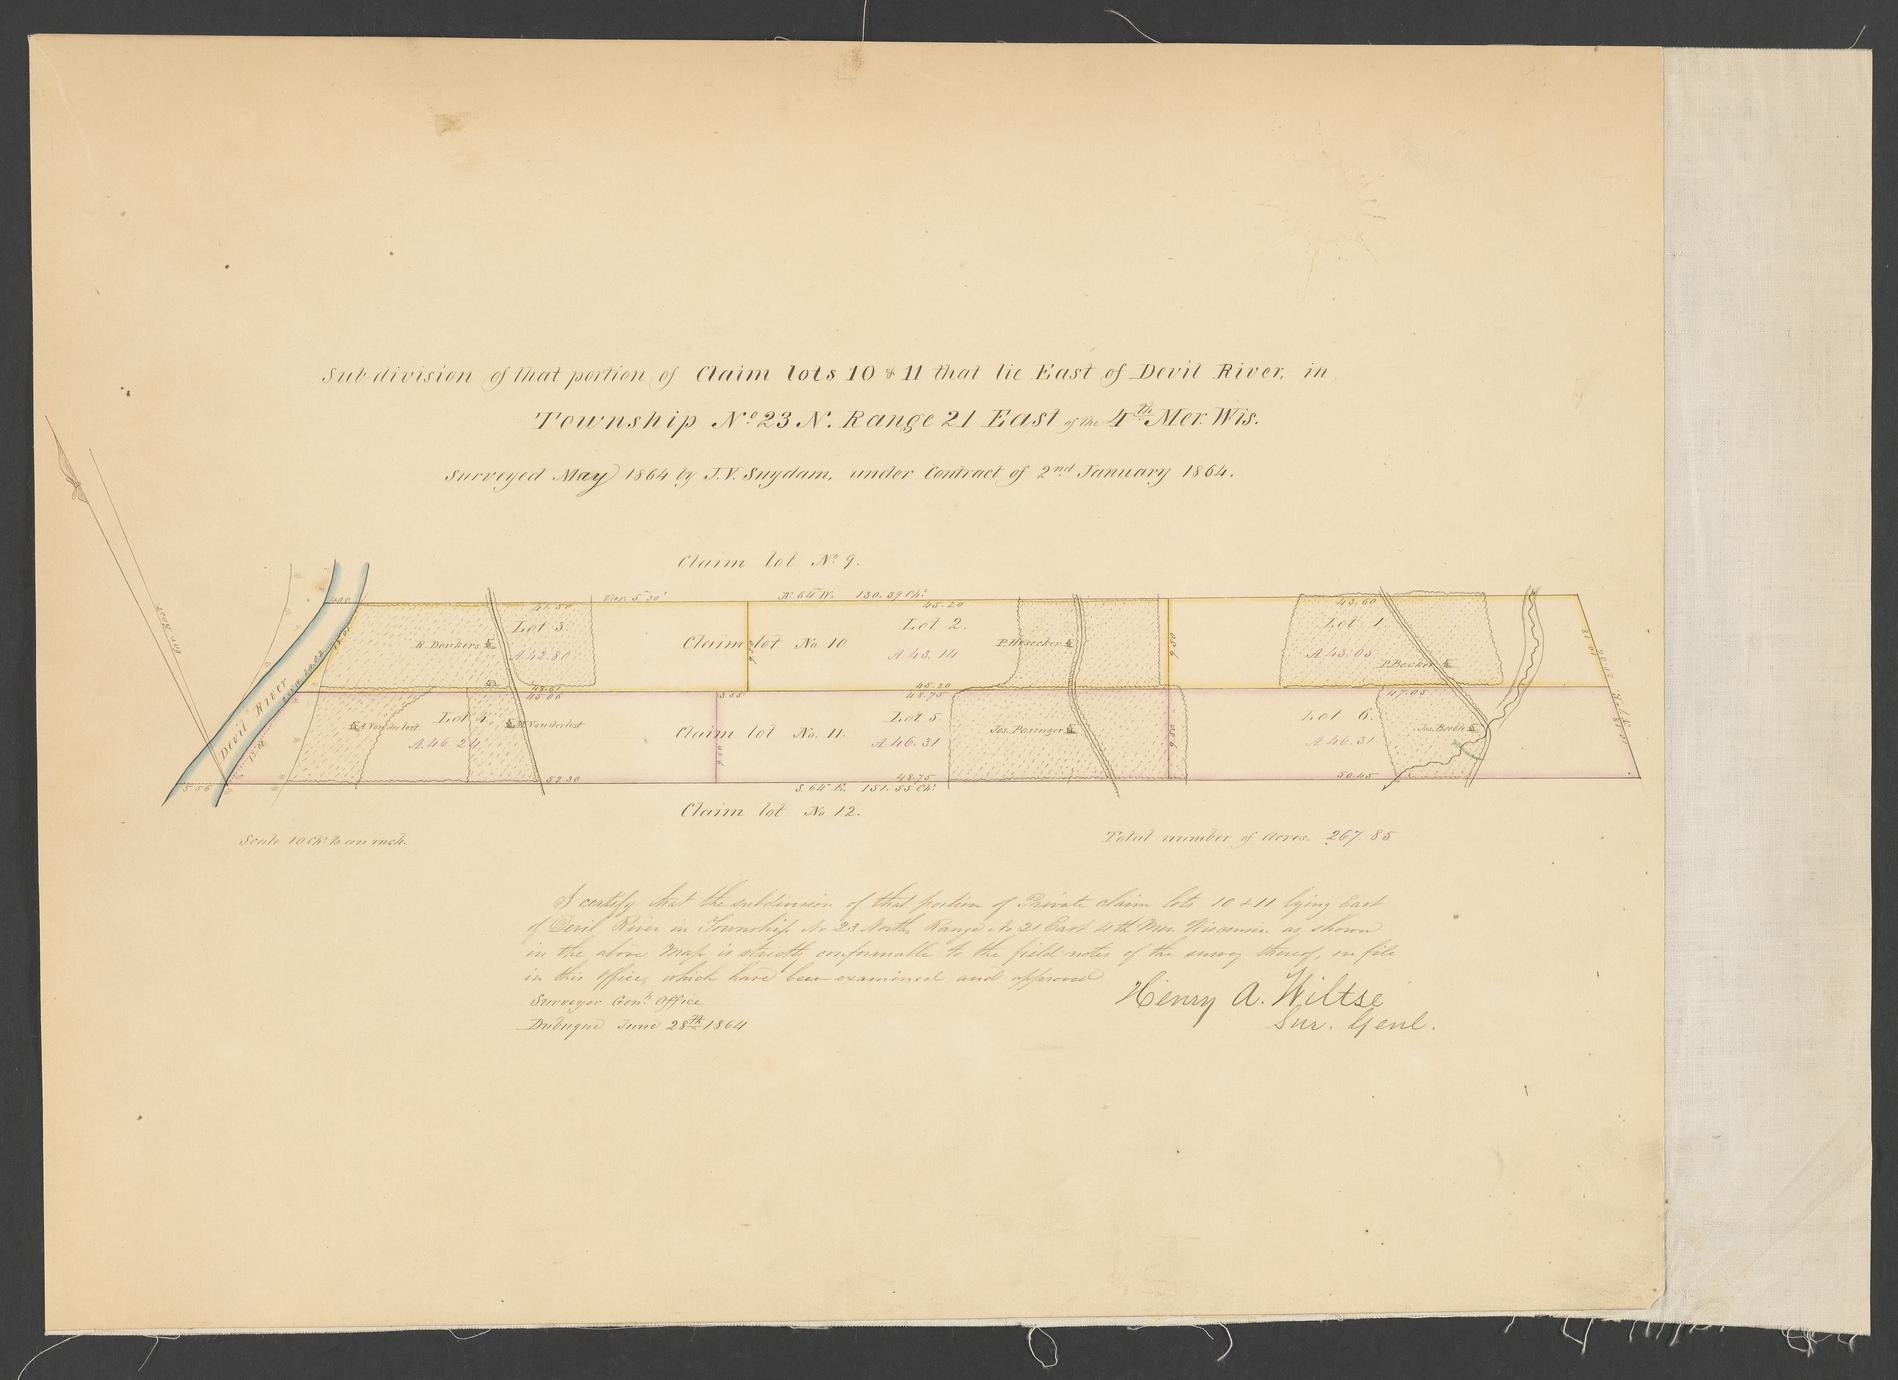 Subdivision of that portion of Claim lots 10 & 11 that lie East of Devil River, in
Township No. 23 N. Range 21 East of the 4th Mer. Wis.
Surveyed May 1864 by J.V. Suydam, under Contract of 2nd January 1864.
Claim lot No 9.
Var. 5° 30' N. 64° W. 130.39 Chs.
41.50 45.20 43.60
Lot 3. Lot 2. Lot 1.
R. Donkers Claim lot No. 10 P. Hesecker
A 42.80 A 43.14 A 43.05
P. Becker
45.20
45.06 3.55 48.75 47.05
Devil River
Lot 4. Lot 5. Lot 6.
Claim lot No. 11.
Jos. Posinger
A 46.24 A 46.31 A 46.31
5.56 52.30 48.75 50.45
S. 64° E. 151.55 Chs.
Claim lot No 12.
Scale 10 Chs. to an inch.
Total number of Acres. 267.85
I certify that the subdivision of that portion of Private claim lots 10 & 11 lying East
of Devil River in Township No 23 North, Range No 21 East 4th Mer. Wisconsin as shown
in the above Map is strictly conformable to the field notes of the survey thereof, on file
in this office, which have been examined and approved
Surveyor Genl. Office
Dubuque June 28th 1864
Henry A. Wiltse
Sur. Genl.